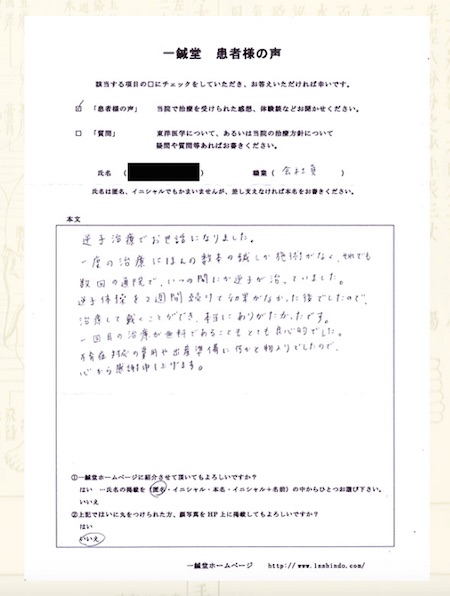 一鍼堂 患者様の声
該当する項目の□にチェックをしていただき、お答えいただければ幸いです。
☑ 「患者様の声」 当院で治療を受けられた感想、体験談などお聞かせください。
□ 「質問」 東洋医学について、あるいは当院の治療方針について
疑問や質問等あればお書きください。
氏名 ( ) 職業 ( 会社員 )
氏名は匿名、イニシャルでもかまいませんが、差し支えなければ本名をお書きください。
本文
逆子治療でお世話になりました。
一度の治療にほんの数本の鍼しか施術がなく、それでも
数回の通院で、いつの間にか逆子が治っていました。
逆子体操を2週間続けても効果がなかった後でしたので、
治療して戴くことができ、本当にありがたかったです。
一回目の治療が無料であることもとても良心的でした。
対応の費用や出産準備に何かと物入りでしたので、
心から感謝申し上げます。
①一鍼堂ホームページに紹介させて頂いてもよろしいですか?
はい →氏名の掲載を(匿名・イニシャル・本名・イニシャル+名前)の中からひとつお選び下さい。
いいえ
②上記ではいに丸をつけられた方、顔写真をHP上に掲載してもよろしいですか?
はい
いいえ
一鍼堂ホームページ http://www.isshindo.com/